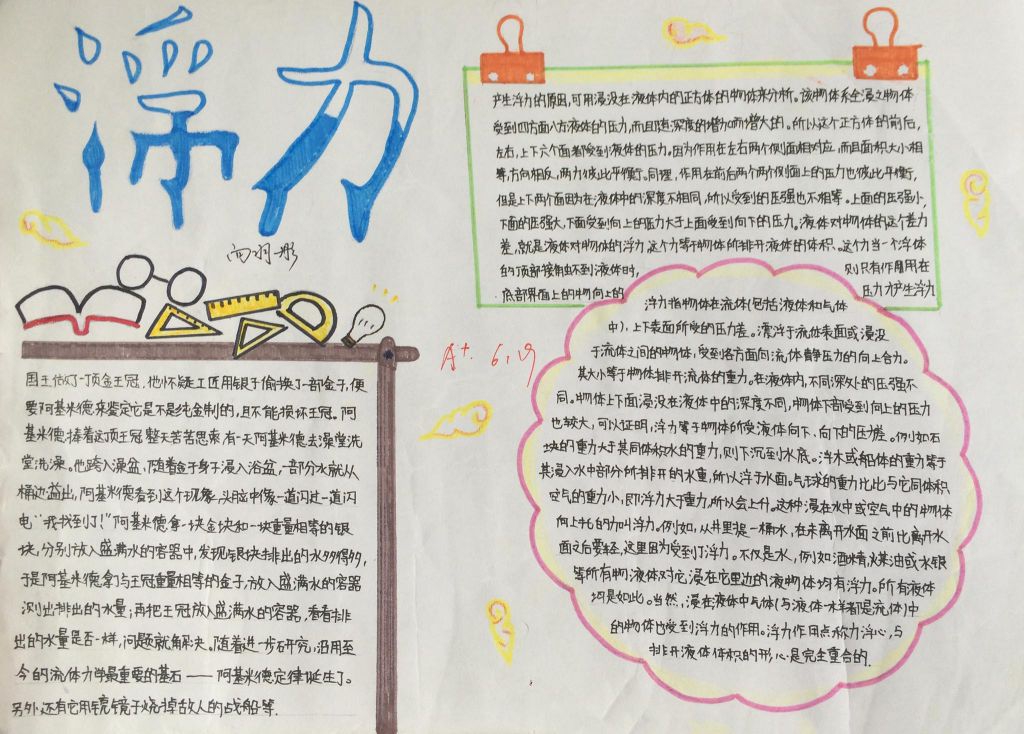 浮力
产生浮力的原因,可用浸没在液体内的正方体的物体来分析。该物体系全浸之物体
受到四方面八方液体的压力,而且随深度的增加而增大的。所以这个正方体的前后,
左右,上下六个面都受到液体的压力。因为作用在左右两个侧面相对应,而且面积大小相
等,方向相反,两力彼此平衡。同理,作用在前后两个侧面上的压力也彼此平衡,
但是上下两个面因为在液体中的深度不相同,所以受到的压强也不相等。上面的压强小,
下面的压强大,下面受到向上的压力大于上面受到向下的压力。液体对物体的这个差力
差,就是液体对物体的浮力,这个力等于物体所排开液体的体积。这个力当一个浮体
的顶部接触不到液体时, 则只有作用用在
底部界面上的物向上的 压力才产生浮力
国王做了一顶金王冠,他怀疑工匠用银子偷换了一部金子,便
要阿基米德来鉴定它是不是纯金制的,且不能损坏王冠。阿
基米德捧着这顶王冠整天苦苦思索,有一天阿基米德去澡堂洗
堂洗澡。他跨入澡盆,随着金子身子浸入浴盆,一部分水就从
桶边溢出,阿基米德看到这个现象,头脑中像一道闪过一道闪
电“我找到了!”阿基米德拿一块金块和一块重量相等的银
块,分别放入盛满水的容器中,发现银块排出的水多得多,
于是阿基米德拿了与王冠重量相等的金子,放入盛满水的容器
测出排出的水量,再把王冠放入盛满水的容器,看看排
出的水量是否一样,问题就解决。随着进一步研究,沿用至
今的流体力学最重要的基石——阿基米德定律诞生了。
另外还有它用镜镜子烧掉敌人的战船等.
A+. 6.19
浮力指物体在流体(包括液体和气体
中),上下表面所受的压力差。漂浮于流体表面或浸没
于流体之间的物体,受到各方面向流体静压力的向上合力。
其大小等于物体排开流体的重力。在液体内,不同深处的压强不
同。物体上下面浸没在液体中的深度不同,物体下部受到向上的压力
也较大,可以证明,浮力等于物体所受液体向下、向下的压差。例如石
块的重力大于其同体积水的重力,则下沉到水底。浮木或船体的重力等于
其浸入水中部分所排开的水重,所以浮于水面。气球的重力比比与它同体积
空气的重力小,即浮力大于重力,所以会上升。这种浸在水中或空气中的物体
向上托的力叫浮力。例如,从井里提一桶水,在未离开水面之前比离开水
面之后要轻,这里因为受到了浮力。不仅是水,例如酒精,煤油或水银
等所有物液体对它浸在它里边的液物体均有浮力。所有液体
均是如此。当然,浸在液体中气体(与液体一样都是流体)中
的物体也受到浮力的作用。浮力作用点称力浮心,与
排开液体体积的形心是完全重合的.